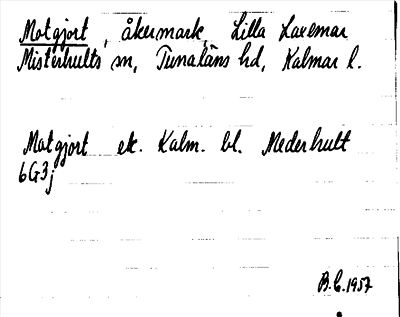 Motgjort, åkermark, Lilla Laxemar
Misterhults sn, Tunaläns hd, Kalmar l.
Matgjort ek. Kalm. bl. Mederhult
6G3j
B.C. 1957